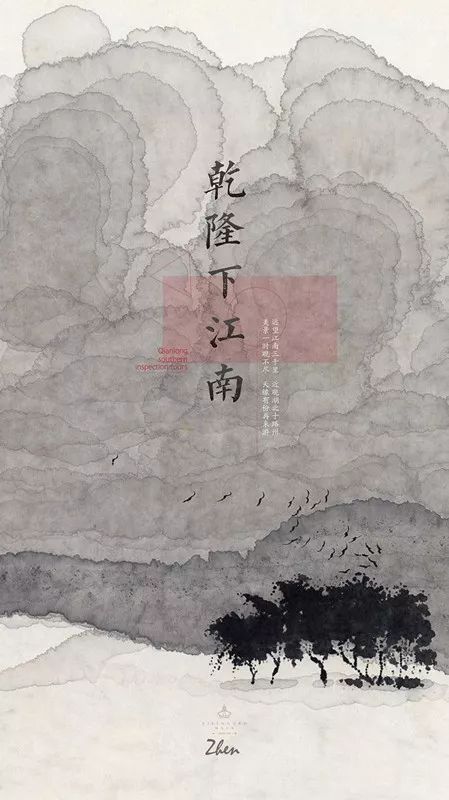 乾隆下江南
Qianlong
southern
inspection tours
远望江南三千里 近观湖北十路州
美景一时观不尽 天缘有份再来游
Zhen